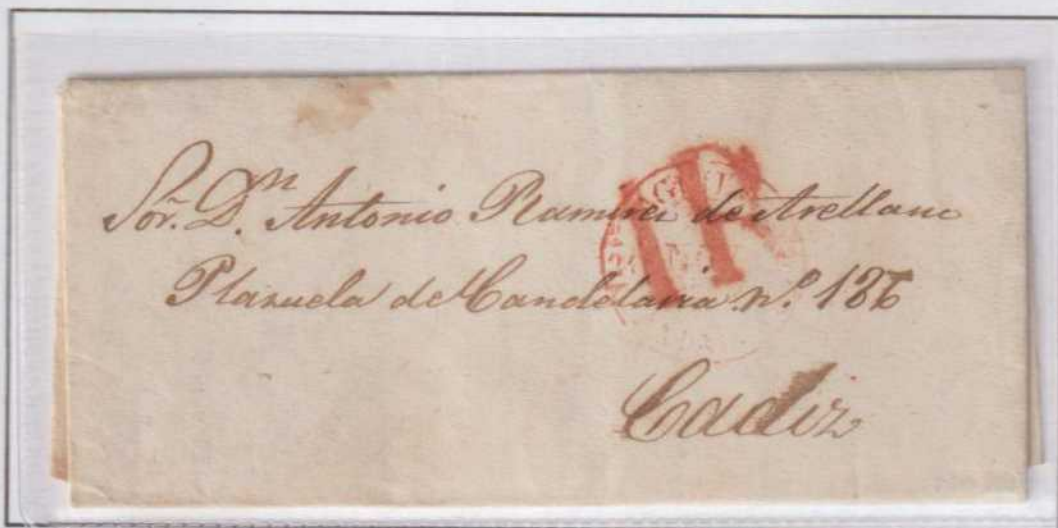 Sõr. Dn. Antonio Ramirez de Arellano
1R
Plazuela de Candelaria nº. 186
Cadiz